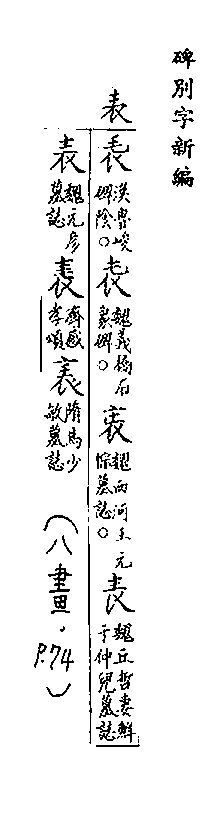 碑別字新編
表
漢魯峻碑陰。
魏義橋石象碑。
魏西河王元悰墓誌。
魏丘哲妻鮮于仲兒墓誌
魏元彥墓誌
齊感孝頌
隋馬少敏墓誌
(八畫.P.74)